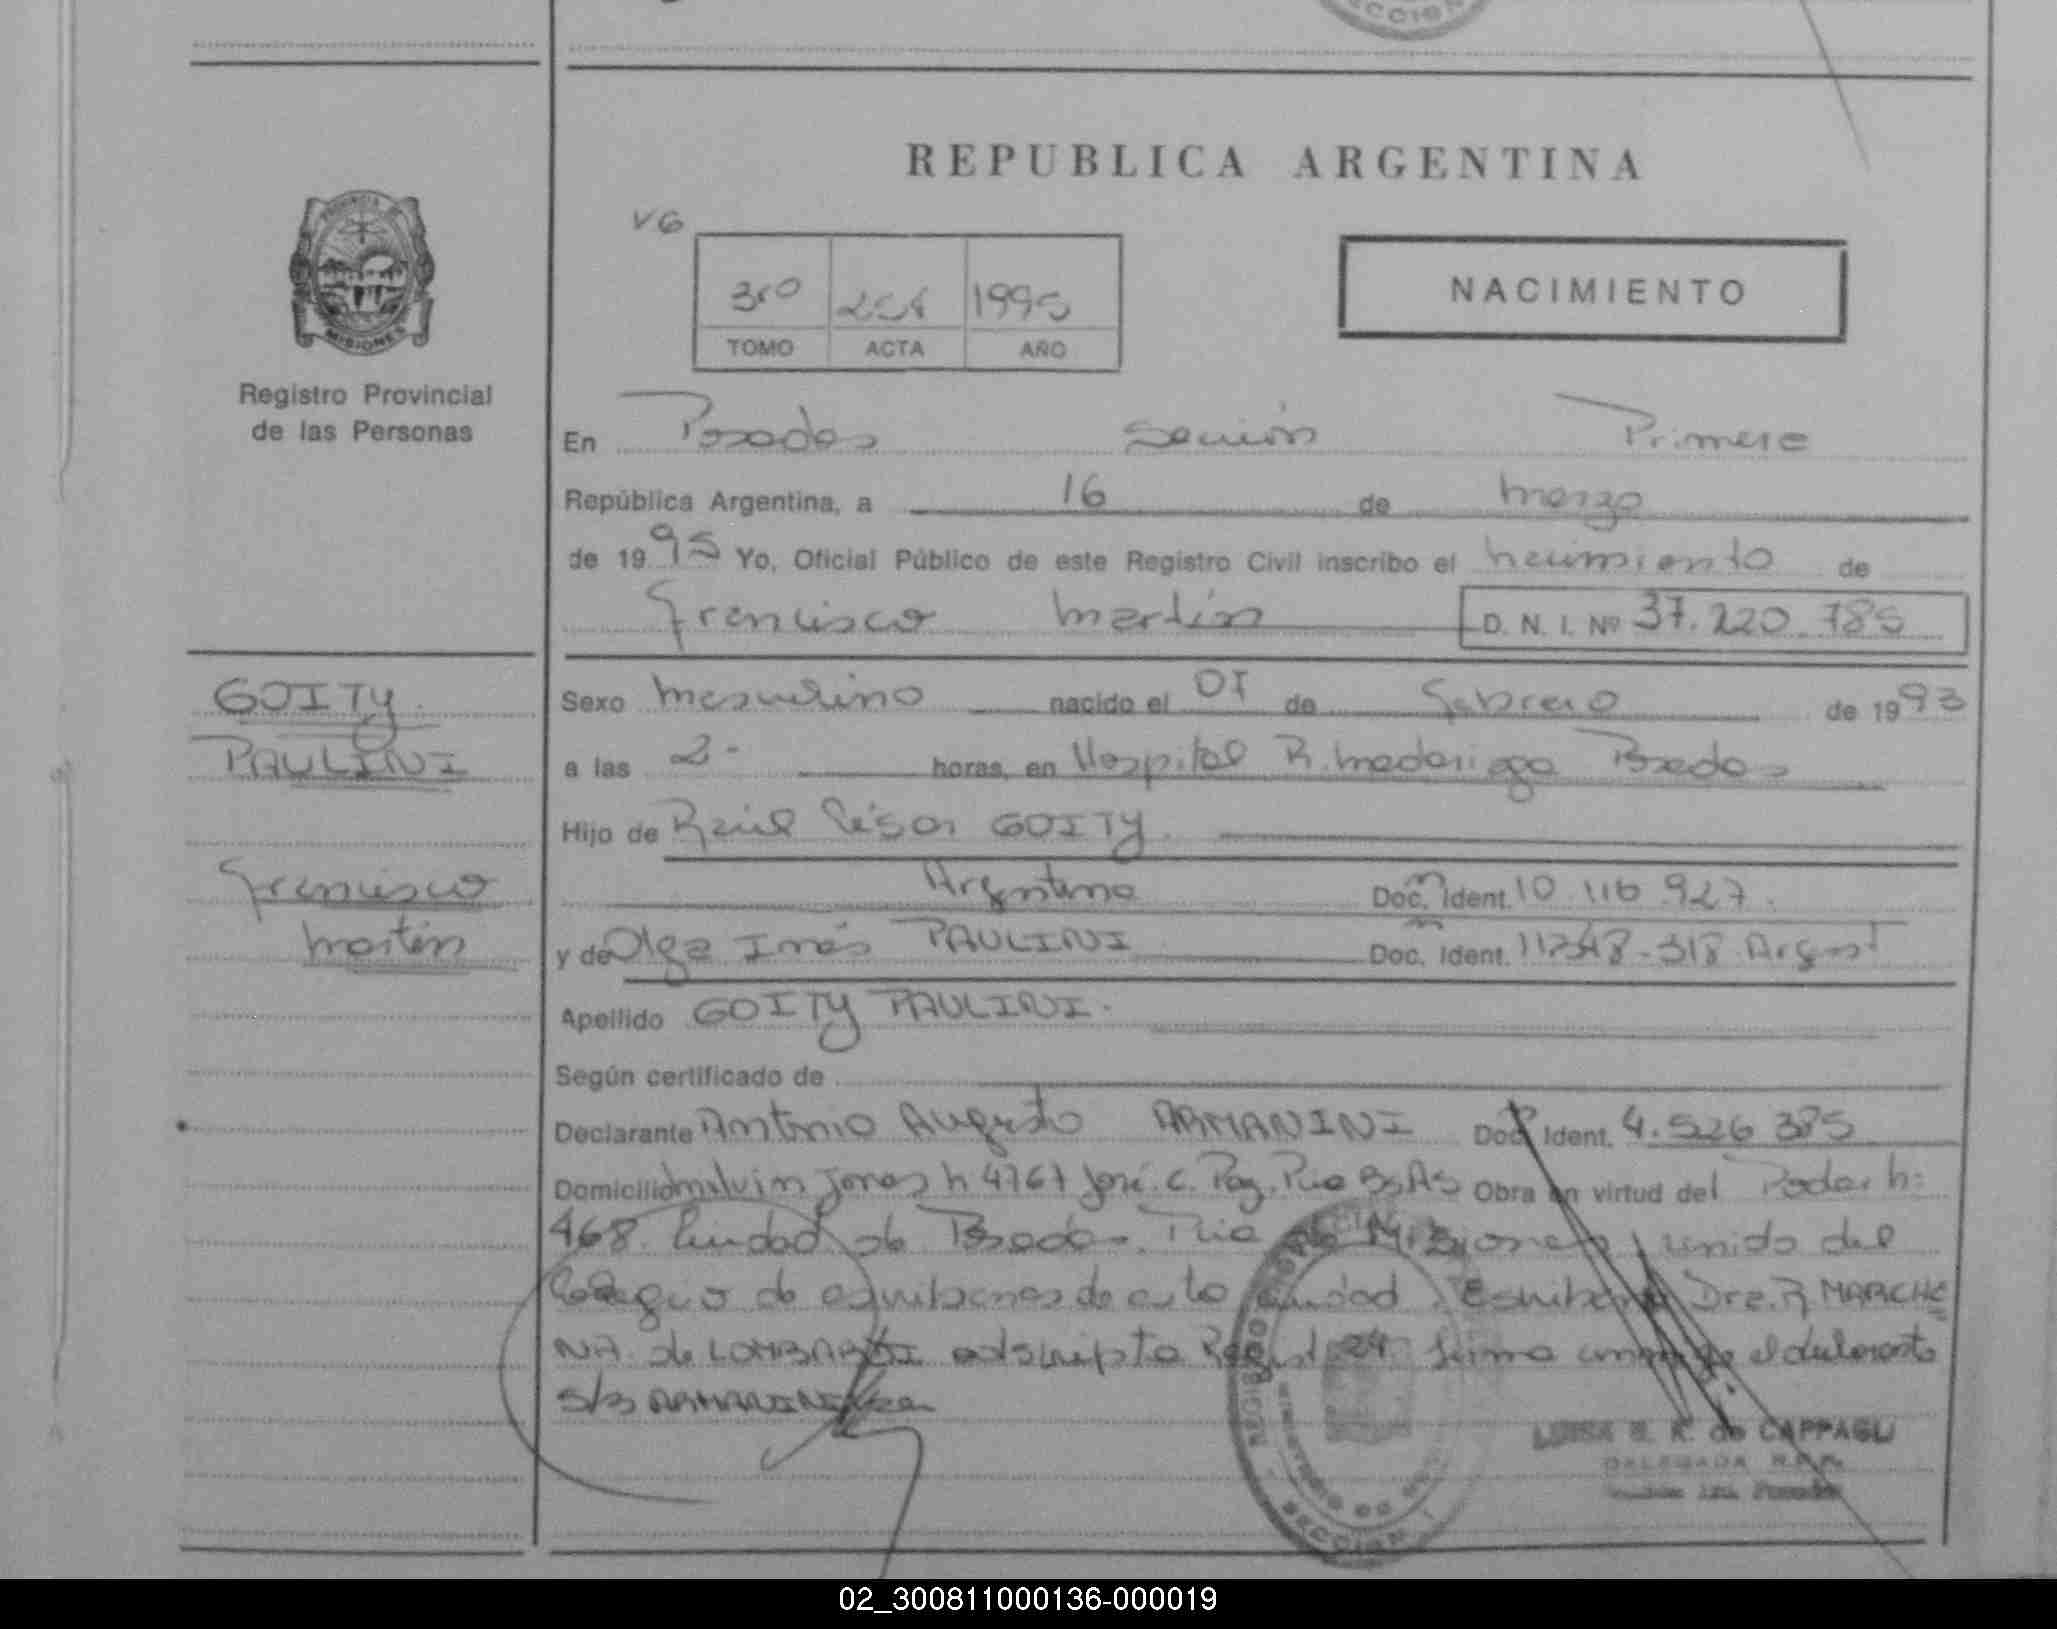 REPUBLICA ARGENTINA
PROVINCIA DE
MISIONES
Registro Provincial
de las Personas
V6
3ro 1995
TOMO ACTA AÑO
NACIMIENTO
En Posadas Sección Primera
República Argentina, a 16 de marzo
de 1995 Yo, Oficial Público de este Registro Civil inscribo el nacimiento de
Francisco Martín D. N. I. Nº 37.220.785
GOITY
PAULINI
Francisco
Martín
Sexo masculino nacido el 01 de Febrero de 1993
a las 2- horas, en Hospital R. Madariaga Posadas
Hijo de Raúl César GOITY
Argentino Doc. Ident. 10.116.927.
y de Olga Inés PAULINI Doc. Ident. 11348.318 Argent
Apellido GOITY PAULINI.
Según certificado de
Declarante Antonio Augusto ARMANINI Doc. Ident. 4.526 385
Domicilio Melvin Jones n 4767 José. C. Paz. Pcia Bs. As Obra en virtud del Poder n:
468. Ciudad de Posadas, Pcia de Misiones, unido del
Colegio de escribanos de esta ciudad. Escribana Dra. R MARCHE
NA de LOMBARDI adscripta Regist 24 firma conmigo el declarante
S/B ARMANINI
SECCION
LUISA S. R. de CAPPAGLI
DELEGADA R.P.P.
Posadas
02_300811000136-000019